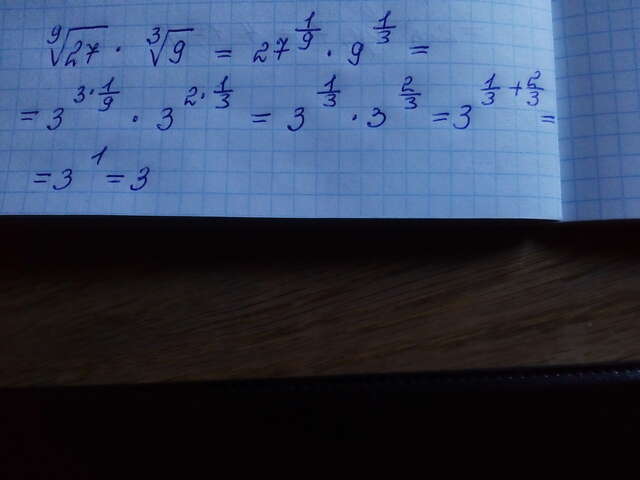 ⁹√27 · ³√9 = 27^(1/9) · 9^(1/3) =
= 3^(3·1/9) · 3^(2·1/3) = 3^(1/3) · 3^(2/3) = 3^(1/3+2/3) =
= 3^1 = 3